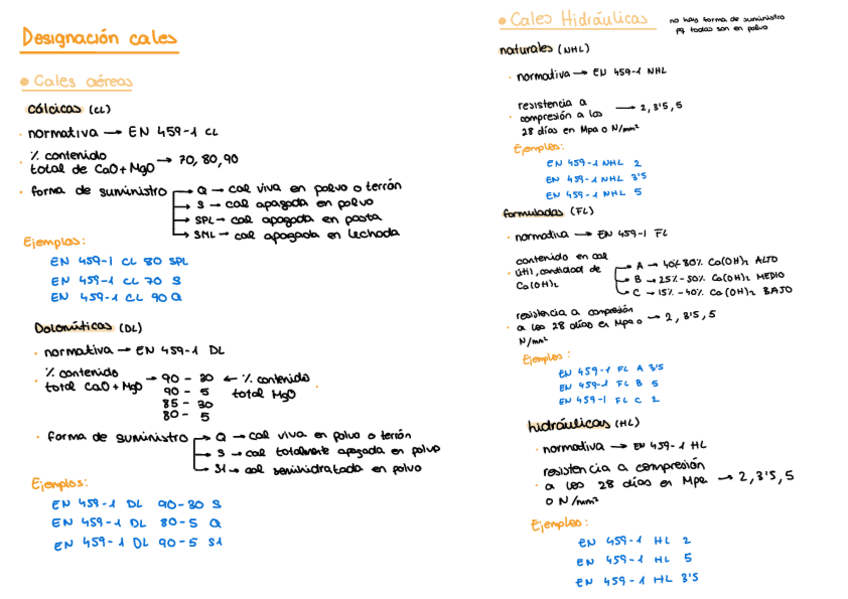 Designación cales
• Cales aéreas
cálcicas (CL)
· normativa → EN 459-1 CL
· % contenido total de CaO + MgO → 70, 80, 90
· forma de suministro → Q → cal viva en polvo o terrón
→ S → cal apagada en polvo
→ SPL → cal apagada en pasta
→ SML → cal apagada en lechada
Ejemplos:
EN 459-1 CL 80 SPL
EN 459-1 CL 70 S
EN 459-1 CL 90 Q
Dolomíticas (DL)
· normativa → EN 459-1 DL
· % contenido total CaO + MgO → 90 - 30 ← % contenido total MgO
90 - 5
85 - 30
80 - 5
· forma de suministro → Q → cal viva en polvo o terrón
→ S → cal totalmente apagada en polvo
→ S1 → cal semihidratada en polvo
Ejemplos:
EN 459-1 DL 90-30 S
EN 459-1 DL 80-5 Q
EN 459-1 DL 90-5 S1
• Cales Hidráulicas
no hay forma de suministro
pq todas son en polvo
naturales (NHL)
· normativa → EN 459-1 NHL
resistencia a
· compresión a los → 2, 3'5, 5
28 días en Mpa o N/mm²
Ejemplos:
EN 459-1 NHL 2
EN 459-1 NHL 3'5
EN 459-1 NHL 5
formuladas (FL)
· normativa → EN 459-1 FL
contenido en cal
· útil, cantidad de
Ca(OH)₂
→ A → 40%-80% Ca(OH)₂ ALTO
→ B → 25%-50% Ca(OH)₂ MEDIO
→ C → 15%-40% Ca(OH)₂ BAJO
resistencia a compresión
· a los 28 días en Mpa o → 2, 3'5, 5
N/mm²
Ejemplos:
EN 459-1 FL A 3'5
EN 459-1 FL B 5
EN 459-1 FL C 2
hidráulicas (HL)
· normativa → EN 459-1 HL
resistencia a compresión
· a los 28 días en Mpa → 2, 3'5, 5
o N/mm²
Ejemplos:
EN 459-1 HL 2
EN 459-1 HL 5
EN 459-1 HL 3'5